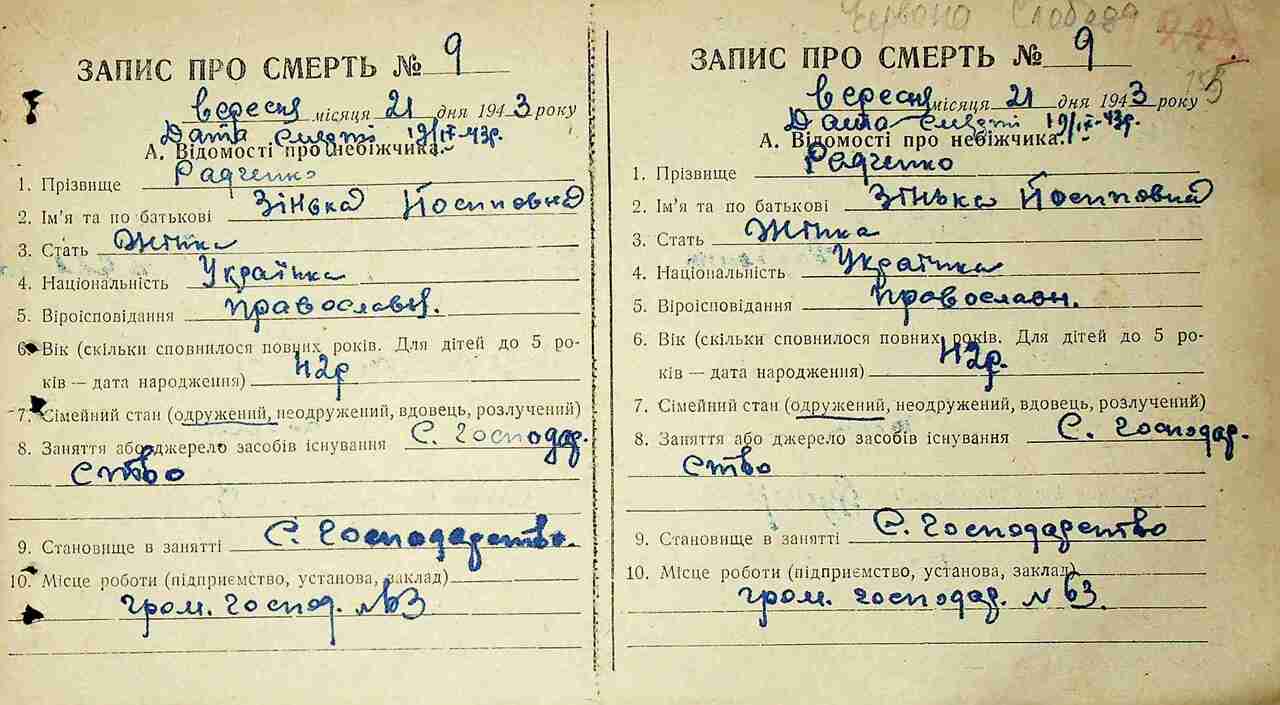 Червона Слобода
ЗАПИС ПРО СМЕРТЬ № 9
вересня місяця 21 дня 1943 року
Дата смерті 19/ІХ-43р.
А. Відомості про небіжчика.
1. Прізвище Радченко
2. Ім'я та по батькові Зінька Йосиповна
3. Стать Жінка
4. Національність Українка
5. Віроісповідання православн.
6. Вік (скільки сповнилося повних років. Для дітей до 5 ро-
ків — дата народження) 42р
7. Сімейний стан (одружений, неодружений, вдовець, розлучений)
8. Заняття або джерело засобів існування С. господар.
ство
9. Становище в занятті С. господарство.
10. Місце роботи (підприємство, установа, заклад)
гром. господ. №63
ЗАПИС ПРО СМЕРТЬ № 9
вересня місяця 21 дня 1943 року
Дата смерті 19/ІХ-43р.
А. Відомості про небіжчика.
1. Прізвище Радченко
2. Ім'я та по батькові Зінька Йосиповна
3. Стать Жінка
4. Національність Українка
5. Віроісповідання православн.
6. Вік (скільки сповнилося повних років. Для дітей до 5 ро-
ків — дата народження) 42р.
7. Сімейний стан (одружений, неодружений, вдовець, розлучений)
8. Заняття або джерело засобів існування С. господар.
ство
9. Становище в занятті С. господарство
10. Місце роботи (підприємство, установа, заклад)
гром. господар. №63.